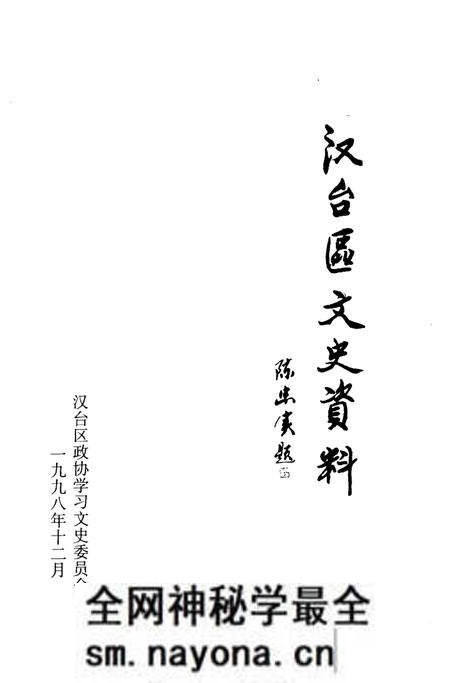 汉台區文史資料
陈忠实题
汉台区政协学习文史委员
一九九八年十二月
全网神秘学最全
sm.nayona.cn